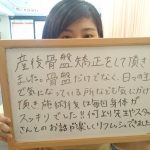 産後骨盤矯正をして頂き
ました。骨盤だけでなく、日々の生
で気になっている所なども気にかけて
頂き施術後は毎回身体が
スッキリでした!!何より先生やスタッフ
さんとのお話が楽しくリフレッシュできました